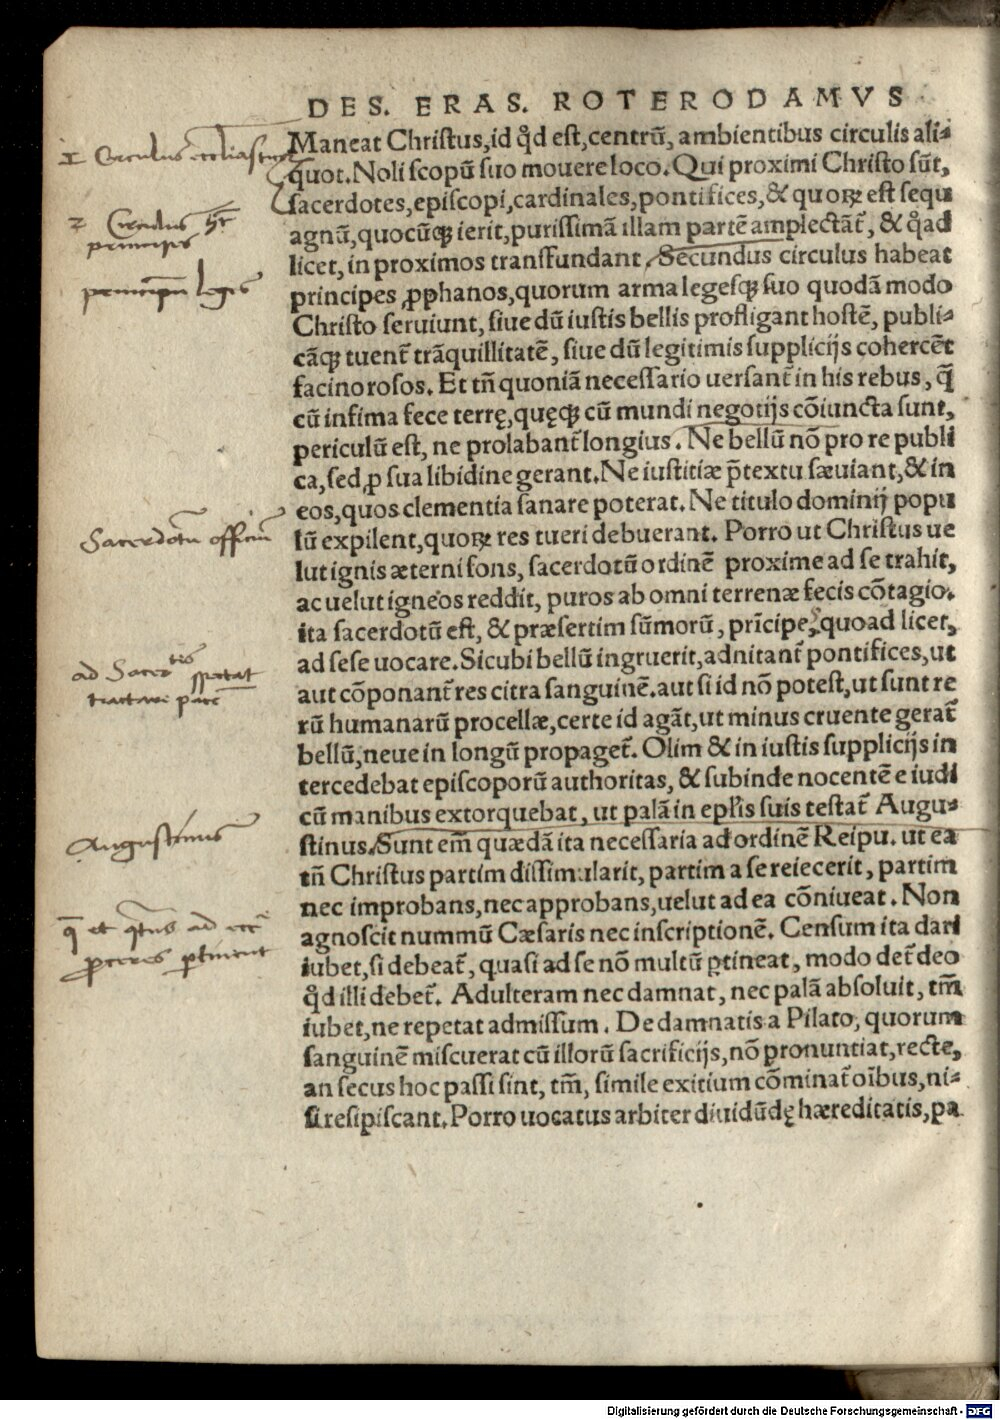 DES. ERAS. ROTERODAMVS
1 Circulus ecclesiasticus
Maneat Christus, id qd̃ est, centrũ, ambientibus circulis ali-
quot. Noli scopũ suo mouere loco. Qui proximi Christo sũt,
sacerdotes, episcopi, cardinales, pontifices, & quoꝝ est sequi
2 Circulus hꝫ
principes
agnũ, quocũqꝫ ierit, purissimã illam partẽ amplectãt᷑, & q̃ad
licet, in proximos transfundant. Secundus circulus habeat
principum leges
principes ꝓphanos, quorum arma legesqꝫ suo quodã modo
Christo seruiunt, siue dũ iustis bellis profligant hostẽ, publi-
cãqꝫ tuent᷑ trãquillitatẽ, siue dũ legitimis supplicijs cohercẽt
facinorosos. Et tñ quoniã necessario uersant᷑ in his rebus, q̃
cũ infima fece terrę, quęqꝫ cũ mundi negotijs cõiuncta sunt,
periculũ est, ne prolabant᷑ longius. Ne bellũ nõ pro re publi
ca, sed ꝓ sua libidine gerant. Ne iustitiæ p̃textu sæuiant, & in
eos, quos clementia sanare poterat. Ne titulo dominij popu
Sacerdotũ officiũ
lũ expilent, quoꝝ res tueri debuerant. Porro ut Christus ue
lut ignis æterni fons, sacerdotũ ordinẽ proxime ad se trahit,
ac uelut igneos reddit, puros ab omni terrenæ fecis cõtagio.
ita sacerdotũ est, & præsertim sũmorũ, prĩcipes, quoad licet,
ad Sacerdotes spectat
tractare pacẽ
ad sese uocare. Sicubi bellũ ingruerit, adnitant᷑ pontifices, ut
aut cõponant᷑ res citra sanguinẽ. aut si id nõ potest, ut sunt re
rũ humanarũ procellæ, certe id agãt, ut minus cruente gerat᷑
bellũ, neue in longũ propaget᷑. Olim & in iustis supplicijs in
tercedebat episcoporũ authoritas, & subinde nocentẽ e iudi
cũ manibus extorquebat, ut palã in epl̃is suis testat᷑ Augu-
Augustinus
stinus. Sunt em̃ quædã ita necessaria ad ordinẽ Reipu. ut ea
tñ Christus partim dissimularit, partim a se reiecerit, partim
nec improbans, nec approbans, uelut ad ea cõniueat. Non
q̃ et q̃tenus ad
proceres ꝑtinent
agnoscit nummũ Cæsaris nec inscriptionẽ. Censum ita dari
iubet, si debeat᷑, quasi ad se nõ multũ ꝑtineat, modo det᷑ deo
qd̃ illi debet᷑. Adulteram nec damnat, nec palã absoluit, tm̃
iubet, ne repetat admissum. De damnatis a Pilato, quorum
sanguinẽ miscuerat cũ illorũ sacrificijs, nõ pronuntiat, recte,
an secus hoc passi sint, tm̃, simile exitium cõminat᷑ oĩbus, ni-
si resipiscant. Porro uocatus arbiter diuidũdę hæreditatis, pa
Digitalisierung gefördert durch die Deutsche Forschungsgemeinschaft - DFG